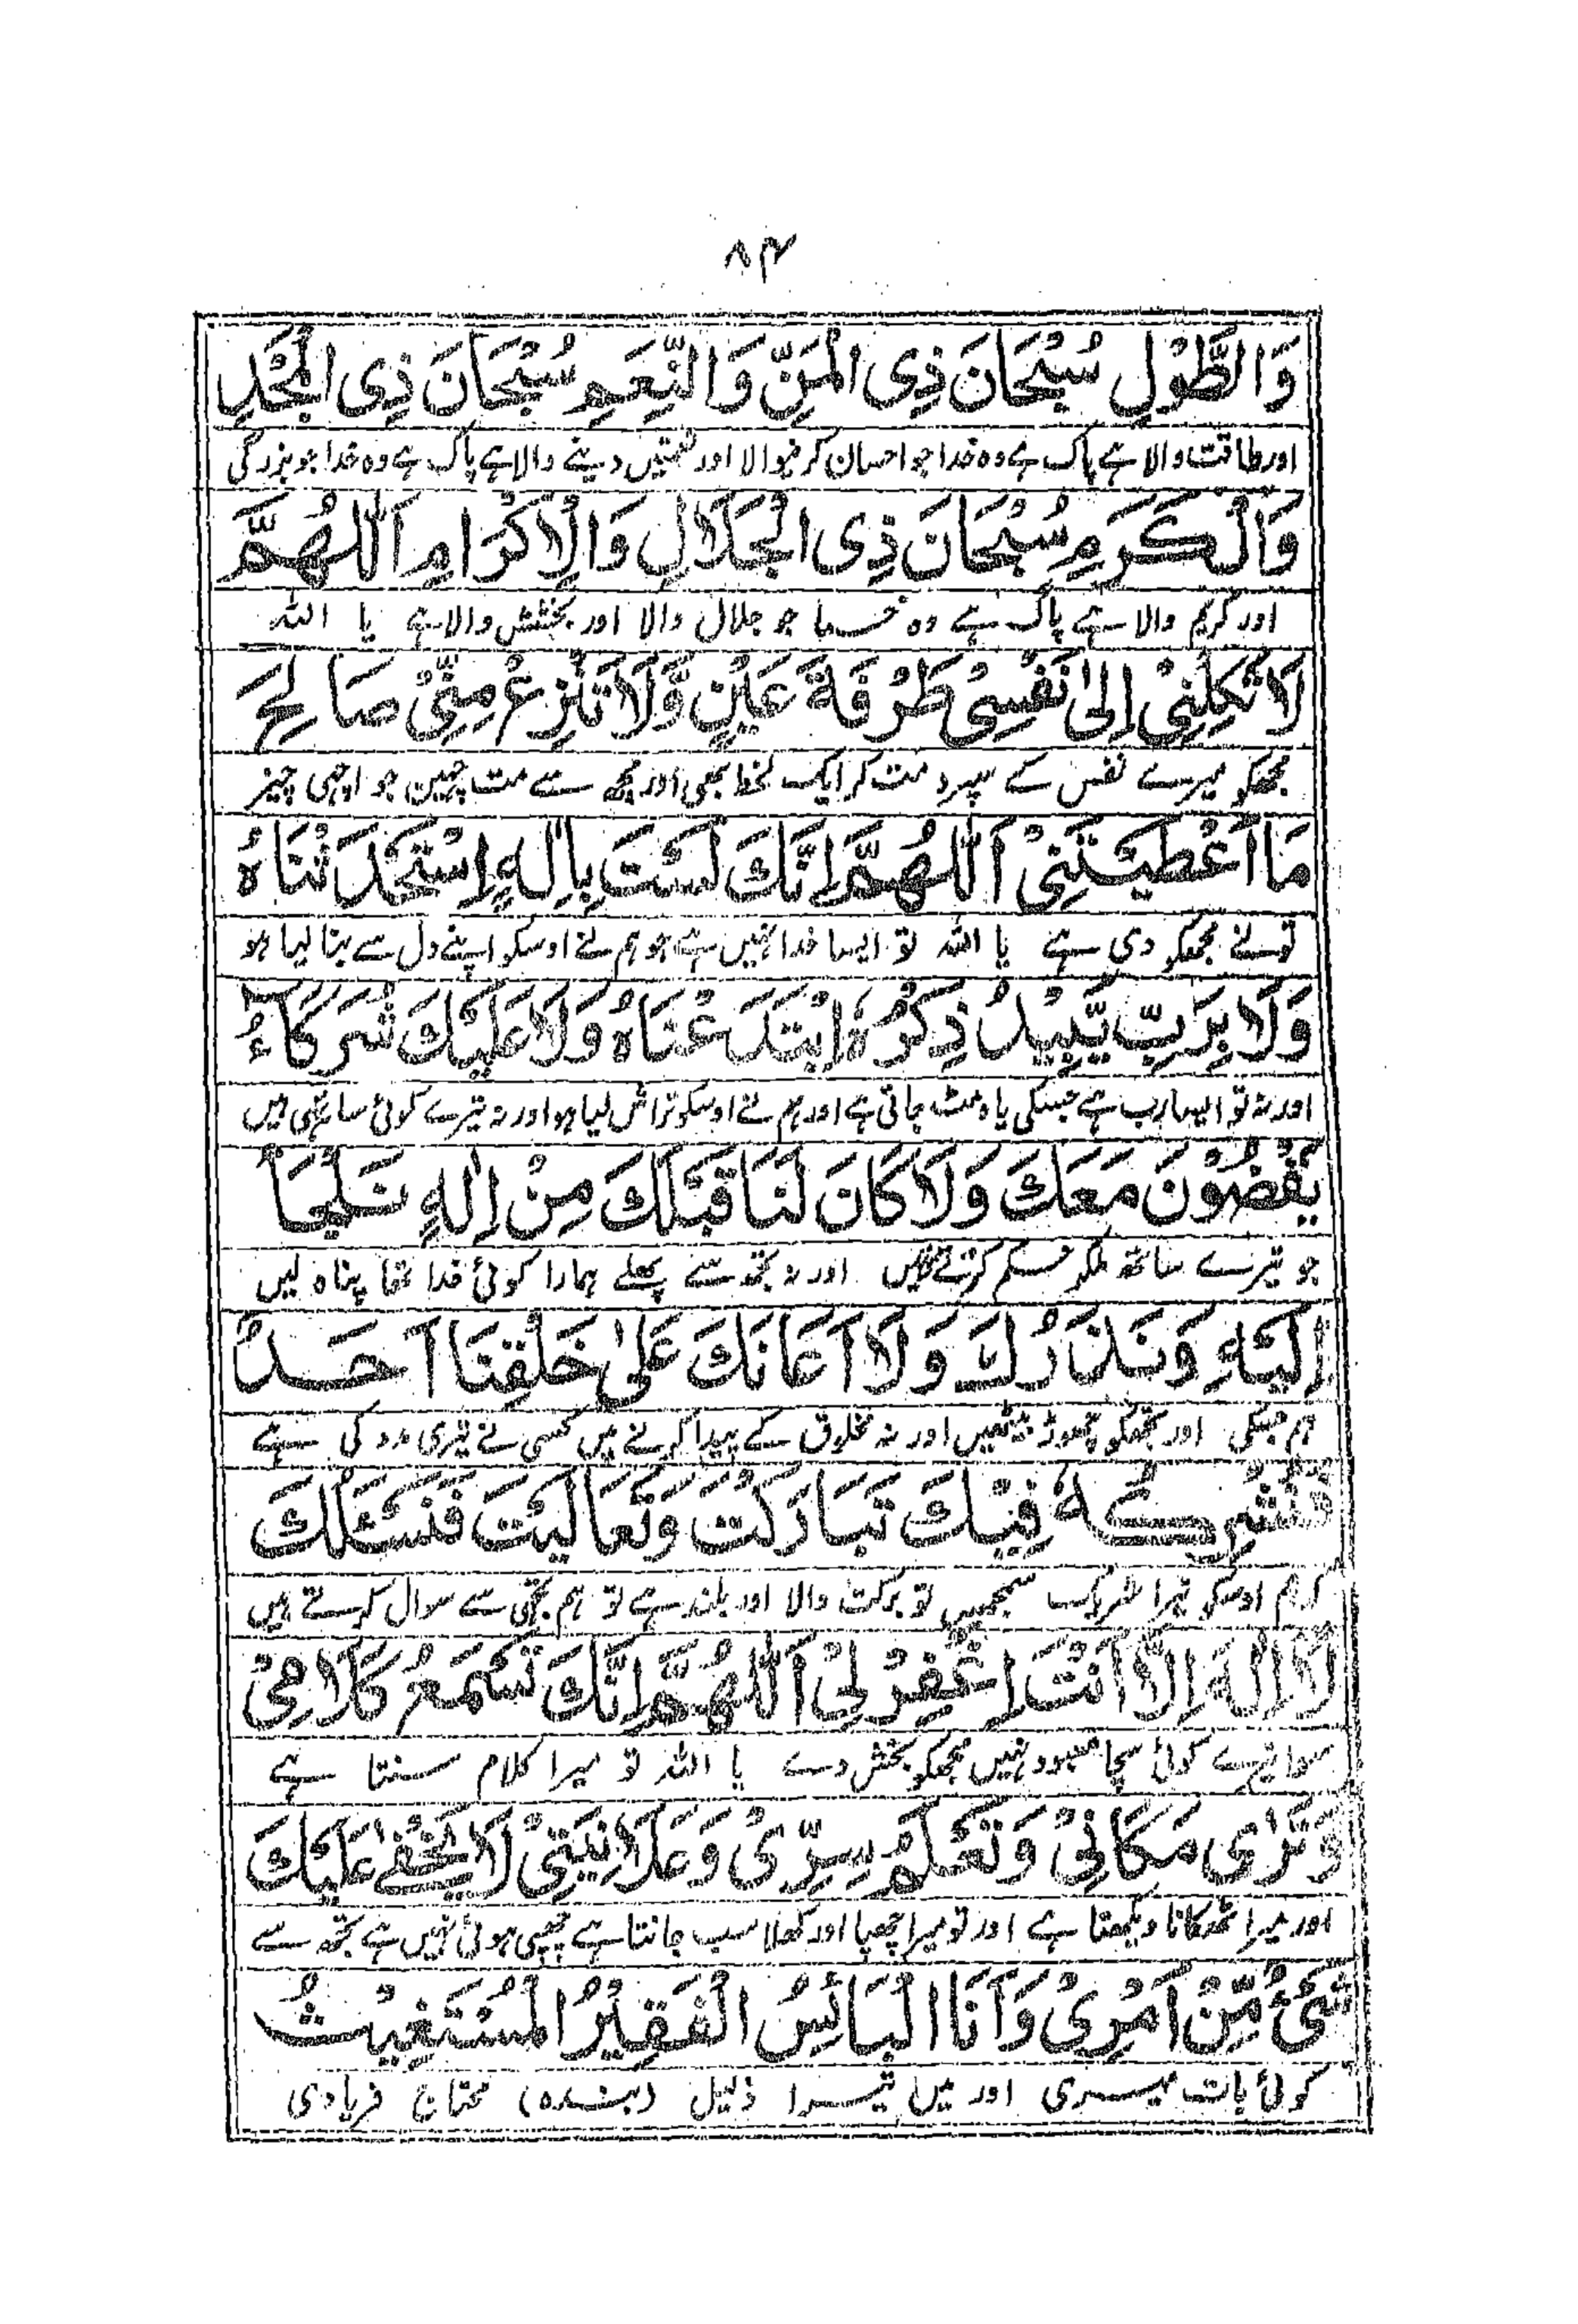 ۸۴
وَالطَّوْلِ سُبْحَانَ ذِی الْمَنِّ وَالنِّعَمِ سُبْحَانَ ذِی الْمَجْدِ
اور طاقت والا ہے پاک ہے وہ خدا جو احسان کرنیوالا اور نعمتیں دینے والا ہے پاک ہے وہ خدا جو بزرگی
وَالْكَرَمِ سُبْحَانَ ذِی الْجَلَالِ وَالْاِكْرَامِ اَللّٰهُمَّ
اور کریم والا ہے پاک ہے وہ خدا جو جلال والا اور بخشش والا ہے یا اللہ
لَا تَكِلْنِیْ اِلٰی نَفْسِیْ طَرْفَةَ عَیْنٍ وَّلَا تَنْزِعْ مِنِّیْ صَالِحَ
مجھکو میرے نفس کے سپرد مت کر ایک لحظ بھی اور مجھ سے مت چہین جو اچہی چیز
مَا اَعْطَیْتَنِیْ اَللّٰهُمَّ اِنَّكَ لَسْتَ بِاِلٰهٍ اِسْتَحْدَثْنَاهُ
تونے مجھکو دی ہے یا اللہ تو ایسا خدا نہیں ہے جو ہم نے اوسکو اپنے دل سے بنا لیا ہو
وَلَا بِرَبٍّ یَّبِیْدُ ذِكْرُهُ ابْتَدَعْنَاهُ وَلَا عَلَیْكَ شُرَكَاءُ
اور نہ تو ایسا رب ہے جسکی یاد مٹ جاتی ہے اور ہم نے اوسکو تراش لیا ہو اور نہ تیرے کوئی ساتھی ہیں
یَقْضُوْنَ مَعَكَ وَلَا كَانَ لَنَا قَبْلَكَ مِنْ اِلٰهٍ نَلْجَأُ
جو تیرے ساتھ ملکر حکم کرتے ہیں اور نہ تجھ سے پہلے ہمارا کوئی خدا تھا پناہ لیں
اِلَیْهِ وَنَذَرُكَ وَلَا اَعَانَكَ عَلٰی خَلْقِنَا اَحَدٌ
ہم جسکی اور تجھکو چھوڑ بیٹھیں اور نہ مخلوق کے پیدا کرنے میں کسی نے تیری مدد کی ہے
فَنُشْرِكُهٗ فِیْكَ تَبَارَكْتَ وَتَعَالَیْتَ فَنَسْئَلُكَ
کہ ہم اوسکو تیرا شریک سمجھیں تو برکت والا اور بلند ہے تو ہم تجہی سے سوال کرتے ہیں
لَا اِلٰهَ اِلَّا اَنْتَ اِغْفِرْ لِیْ اَللّٰهُمَّ اِنَّكَ تَسْمَعُ كَلَامِیْ
سوا تیرے کوئی سچا معبود نہیں مجھکو بخش دے یا اللہ تو میرا کلام سنتا ہے
وَتَرٰی مَكَانِیْ وَتَعْلَمُ سِرِّیْ وَعَلَانِیَتِیْ لَا یَخْفٰی عَلَیْكَ
اور میرا ٹھکانا دیکھتا ہے اور تو میرا چھپا اور کھلا سب جانتا ہے چھپی ہوئی نہیں ہے تجھ سے
شَیْءٌ مِّنْ اَمْرِیْ وَاَنَا الْبَائِسُ الْفَقِیْرُ الْمُسْتَغِیْثُ
کوئی بات میری اور میں تیرا ذلیل (بندہ) محتاج فریادی